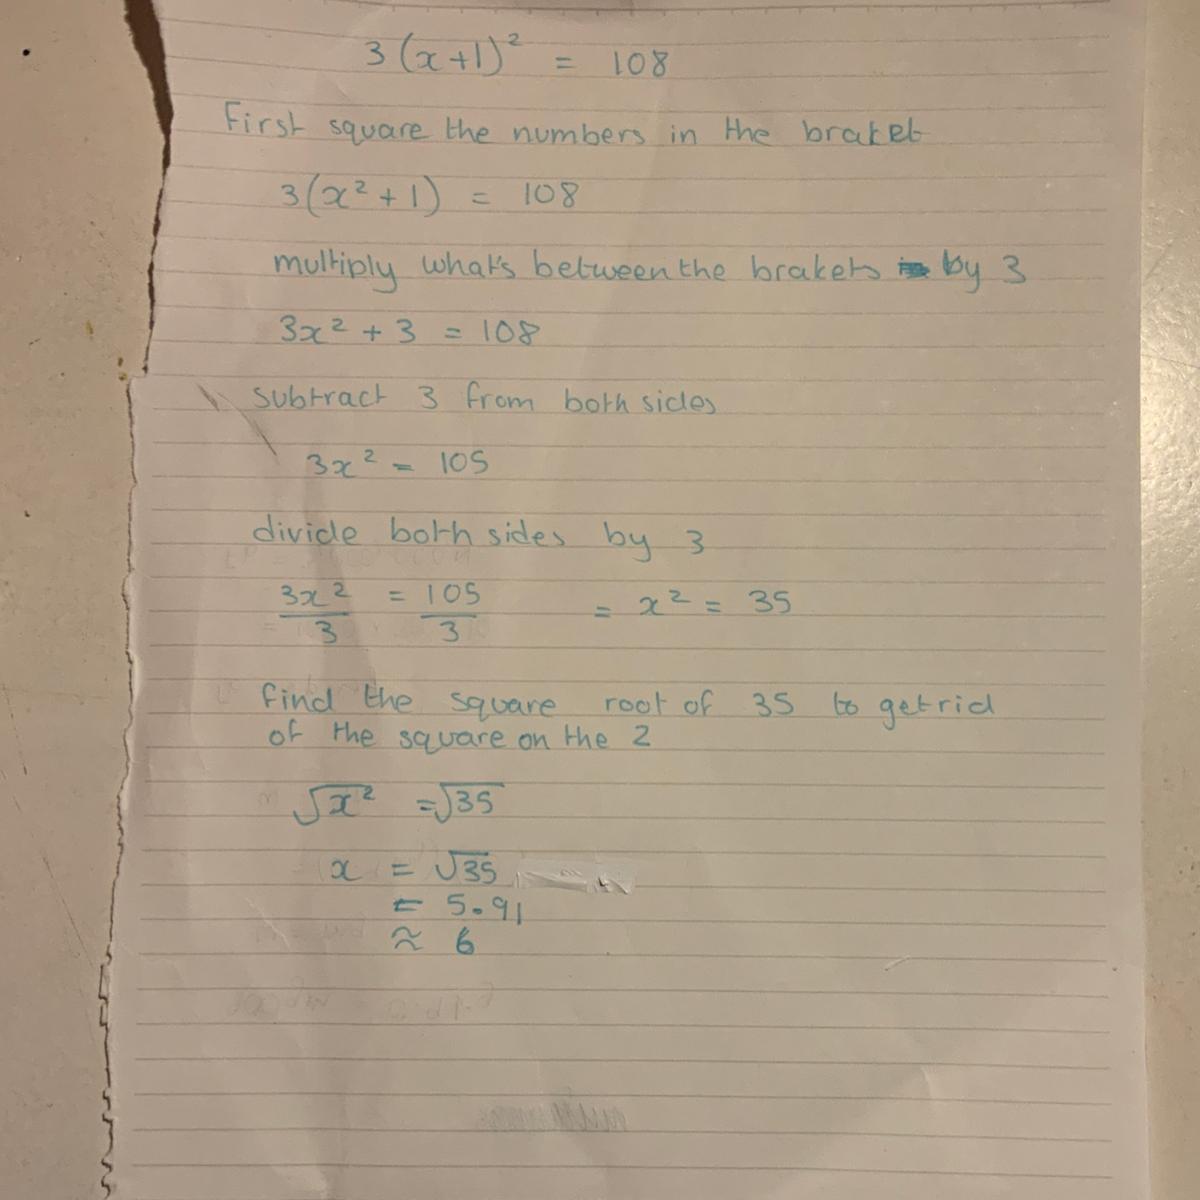 3(x+1)² = 108
First square the numbers in the braket
3(x²+1) = 108
multiply what's between the brakets by 3
3x² + 3 = 108
subtract 3 from both sides
3x² = 105
divide both sides by 3
3x²/3 = 105/3 = x² = 35
find the square root of 35 to get rid
of the square on the 2
√x² = √35
x = √35
= 5.91
≈ 6